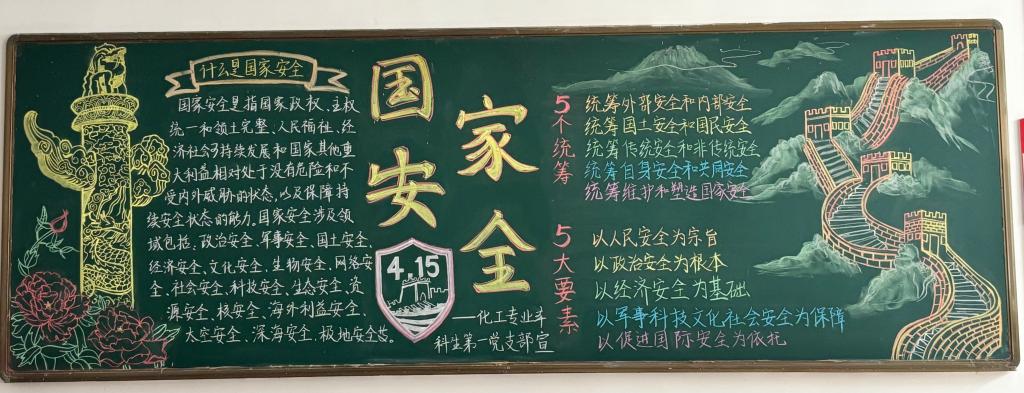 什么是国家安全
国家安全是指国家政权、主权
统一和领土完整、人民福祉、经
济社会可持续发展和国家其他重
大利益相对处于没有危险和不
受内外威胁的状态,以及保障持
续安全状态的能力。国家安全涉及领
域包括:政治安全、军事安全、国土安全、
经济安全、文化安全、生物安全、网络安
全、社会安全、科技安全、生态安全、资
源安全、核安全、海外利益安全、
太空安全、深海安全、极地安全等。
国家安全
4.15
——化工专业本
科生第一党支部宣
5个统筹
统筹外部安全和内部安全
统筹国土安全和国民安全
统筹传统安全和非传统安全
统筹自身安全和共同安全
统筹维护和塑造国家安全
5大要素
以人民安全为宗旨
以政治安全为根本
以经济安全为基础
以军事科技文化社会安全为保障
以促进国际安全为依托